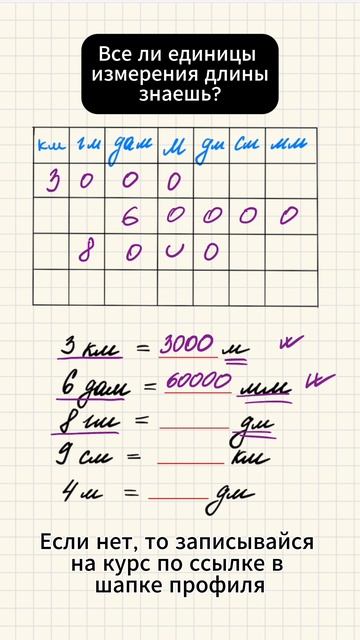 Все ли единицы
измерения длины
знаешь?
км гм дам м дм см мм
3 0 0 0
6 0 0 0 0
8 0 0 0
3 км = 3000 м
6 дам = 60000 мм
8 гм = дм
9 см = км
4 м = дм
Если нет, то записывайся
на курс по ссылке в
шапке профиля